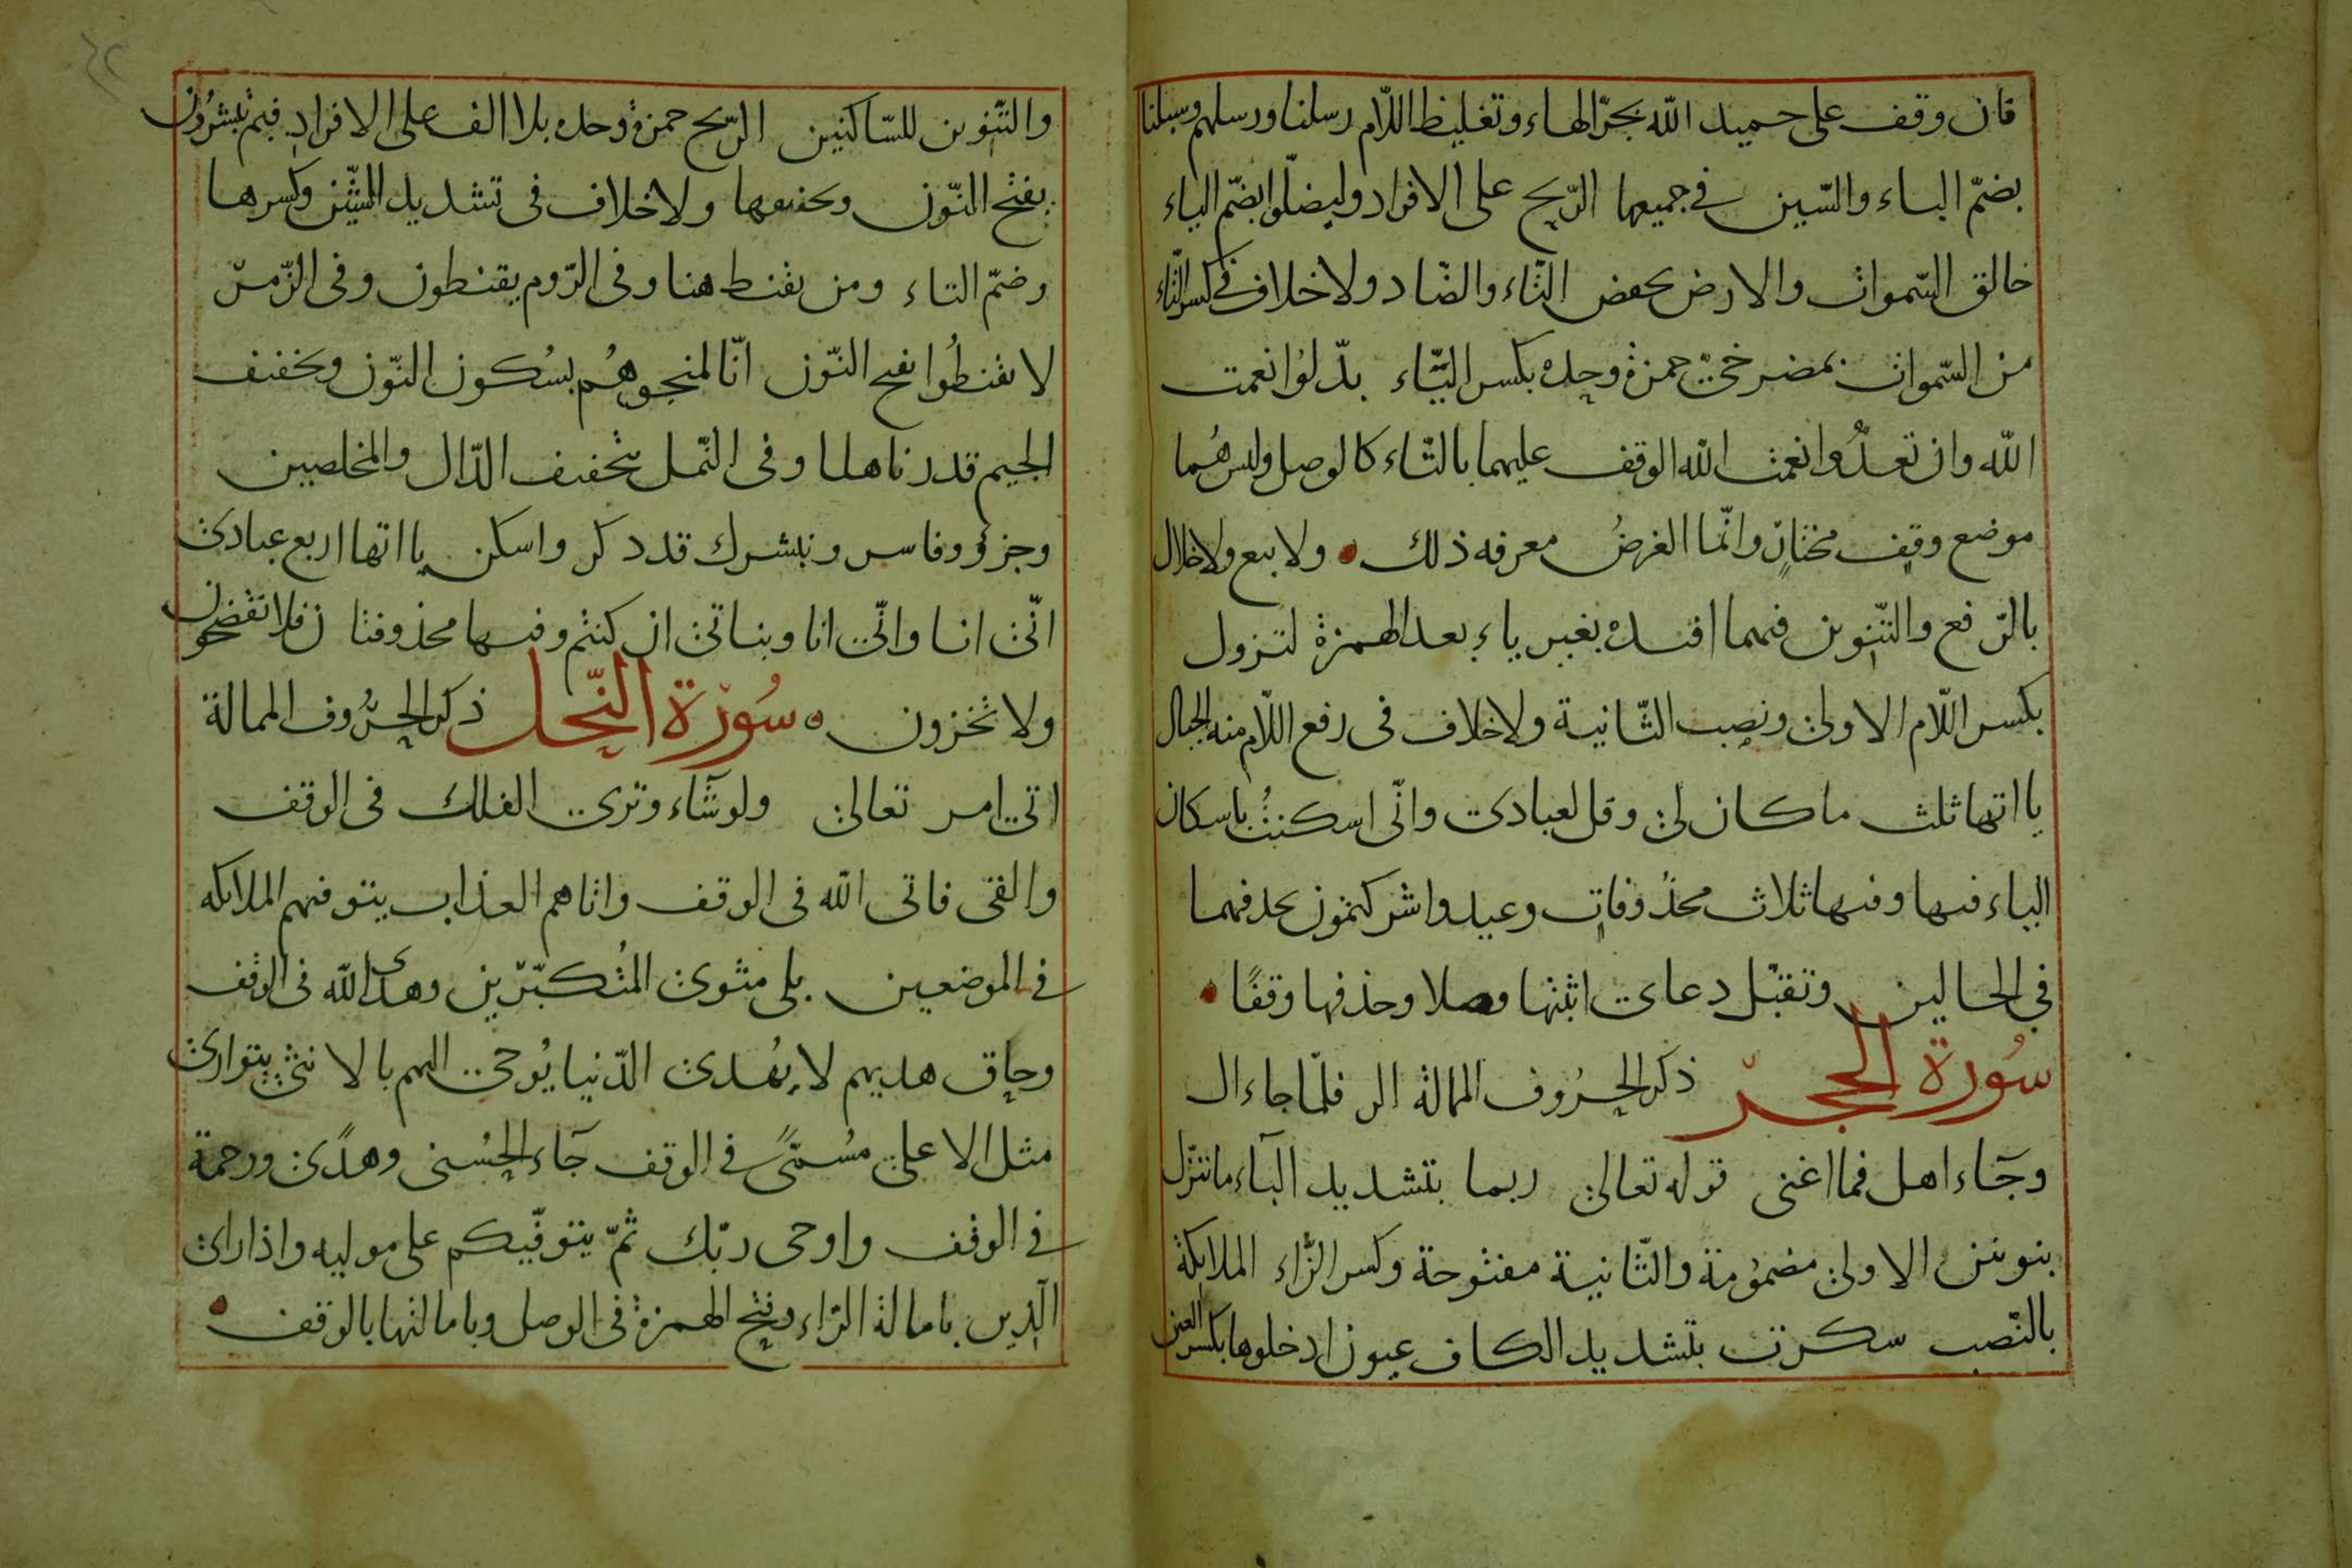 فان وقف على حميد الله بجرّ الهاء وتغليظ اللّام رسلنا ورسلهم وسبلنا
بضمّ الباء والسّين في جميعها الرّيح على الافراد وليضلّوا بضمّ الياء
خالق السّموات والارض بخفض التّاء والضّاد ولا خلاف في كسر التّاء
من السّموات بمصرخيّ حمزة وحده بكسر اليّاء بدّلوا نعمت
الله وان تعدّوا نعمت الله الوقف عليهما بالتّاء كالوصل وليس هُما
موضع وقفٍ مختارٍ وانّما الغرضُ معرفه ذلك ولا بيع ولا خلال
بالرّفع والتّنوين فيهما افئدة بغير ياءٍ بعد الهمزة لتزول
بكسر اللّام الاولى ونصب الثّانية ولا خلاف في رفع اللّام منه الجبال
يااتها ثلث ما كان لي وقل لعبادي وانّى اسكنتُ باسكان
الياء فيها وفيها ثلاث محذُوفاتٍ وعيد واشركتمون بحذفهما
في الحالين وتقبّل دعاى اثبتها وصلا وحذفها وقفًا
سُورة الحجر ذكر الحرُوف الممالة الر فلمّا جاء ال
وجَاء اهل فما اغنى قوله تعالى ربما بتشديد الباء ما ننزّل
بنونين الاولى مضمُومة والثّانية مفتوحة وكسر الزّاء الملائكة
بالنّصب سكرت بتشديد الكاف عيون ادخلوها بكسر العين
والتّنوين للسّاكنين الرّيح حمزة وحده بلا الف على الافراد فبم تبشرُون
بفتح النّون وتخفيفها ولا خلاف في تشديد الشّين وكسرها
وضمّ التاء ومن يقنط هنا وفى الرّوم يقنطون وفى الزّمر
لا تقنطُوا بفتح النّون انّا لمنجوهُم بسُكون النّون وتخفيف
الجيم قدرناها هنا وفى النّمل بتخفيف الدّال والمخلصين
وجزؤ وفاسر ونبشرك قد ذكر واسكن يااتها اربع عبادى
انّى انا وانّى انا وبناتى ان كنتم وفيها محذوفتان فلا تفضحون
ولا تخزون ه سُورة النّحل ذكر الحرُوف الممالة
اتى امر تعالى ولو شَاء وترى الفلك فى الوقف
والقى فاتى الله فى الوقف واتاهم العذاب يتوفيهم الملائكه
في الموضعين بلى مثوى المُتكبّرين وهدى الله فى الوقف
وحاق هديهم لا يُهدى الدّنيا يُوحى اليهم بالانثى يتوارى
مثل الاعلى مُسمًّى في الوقف جَاء الحُسنى وهدًى ورحمة
في الوقف واوحى ربّك ثمّ يتوفّيكم على موليه واذا راى
الّذين بامالة الرّاء وفتح الهمزة فى الوصل وبامالتها بالوقف